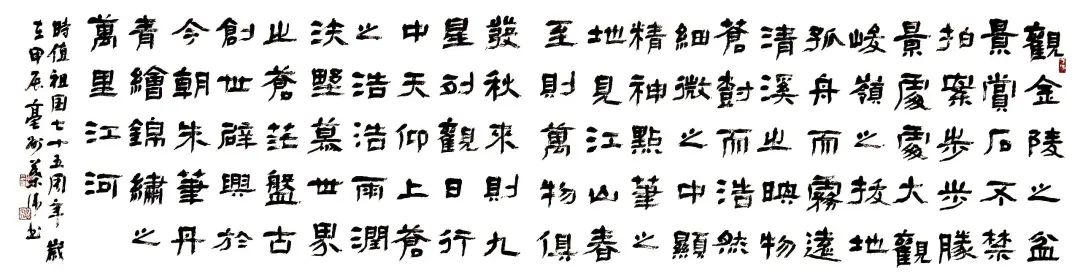 觀金陵之盆
景賞石不禁
拍案步步勝
景處處大觀
峻嶺之拔地
孤舟而霧遠
清溪之映物
蒼對而浩然
細微之中顯
精神點筆之
地見江山春
至則萬物俱
發秋來則九
星列觀日行
中天仰上蒼
之浩浩雨潤
泱墅慕世界
之蒼茫盤古
創世辟興於
今朝朱筆丹
青繪錦繡之
萬里江河
時值祖國七十五周年歲
在甲辰臺州書